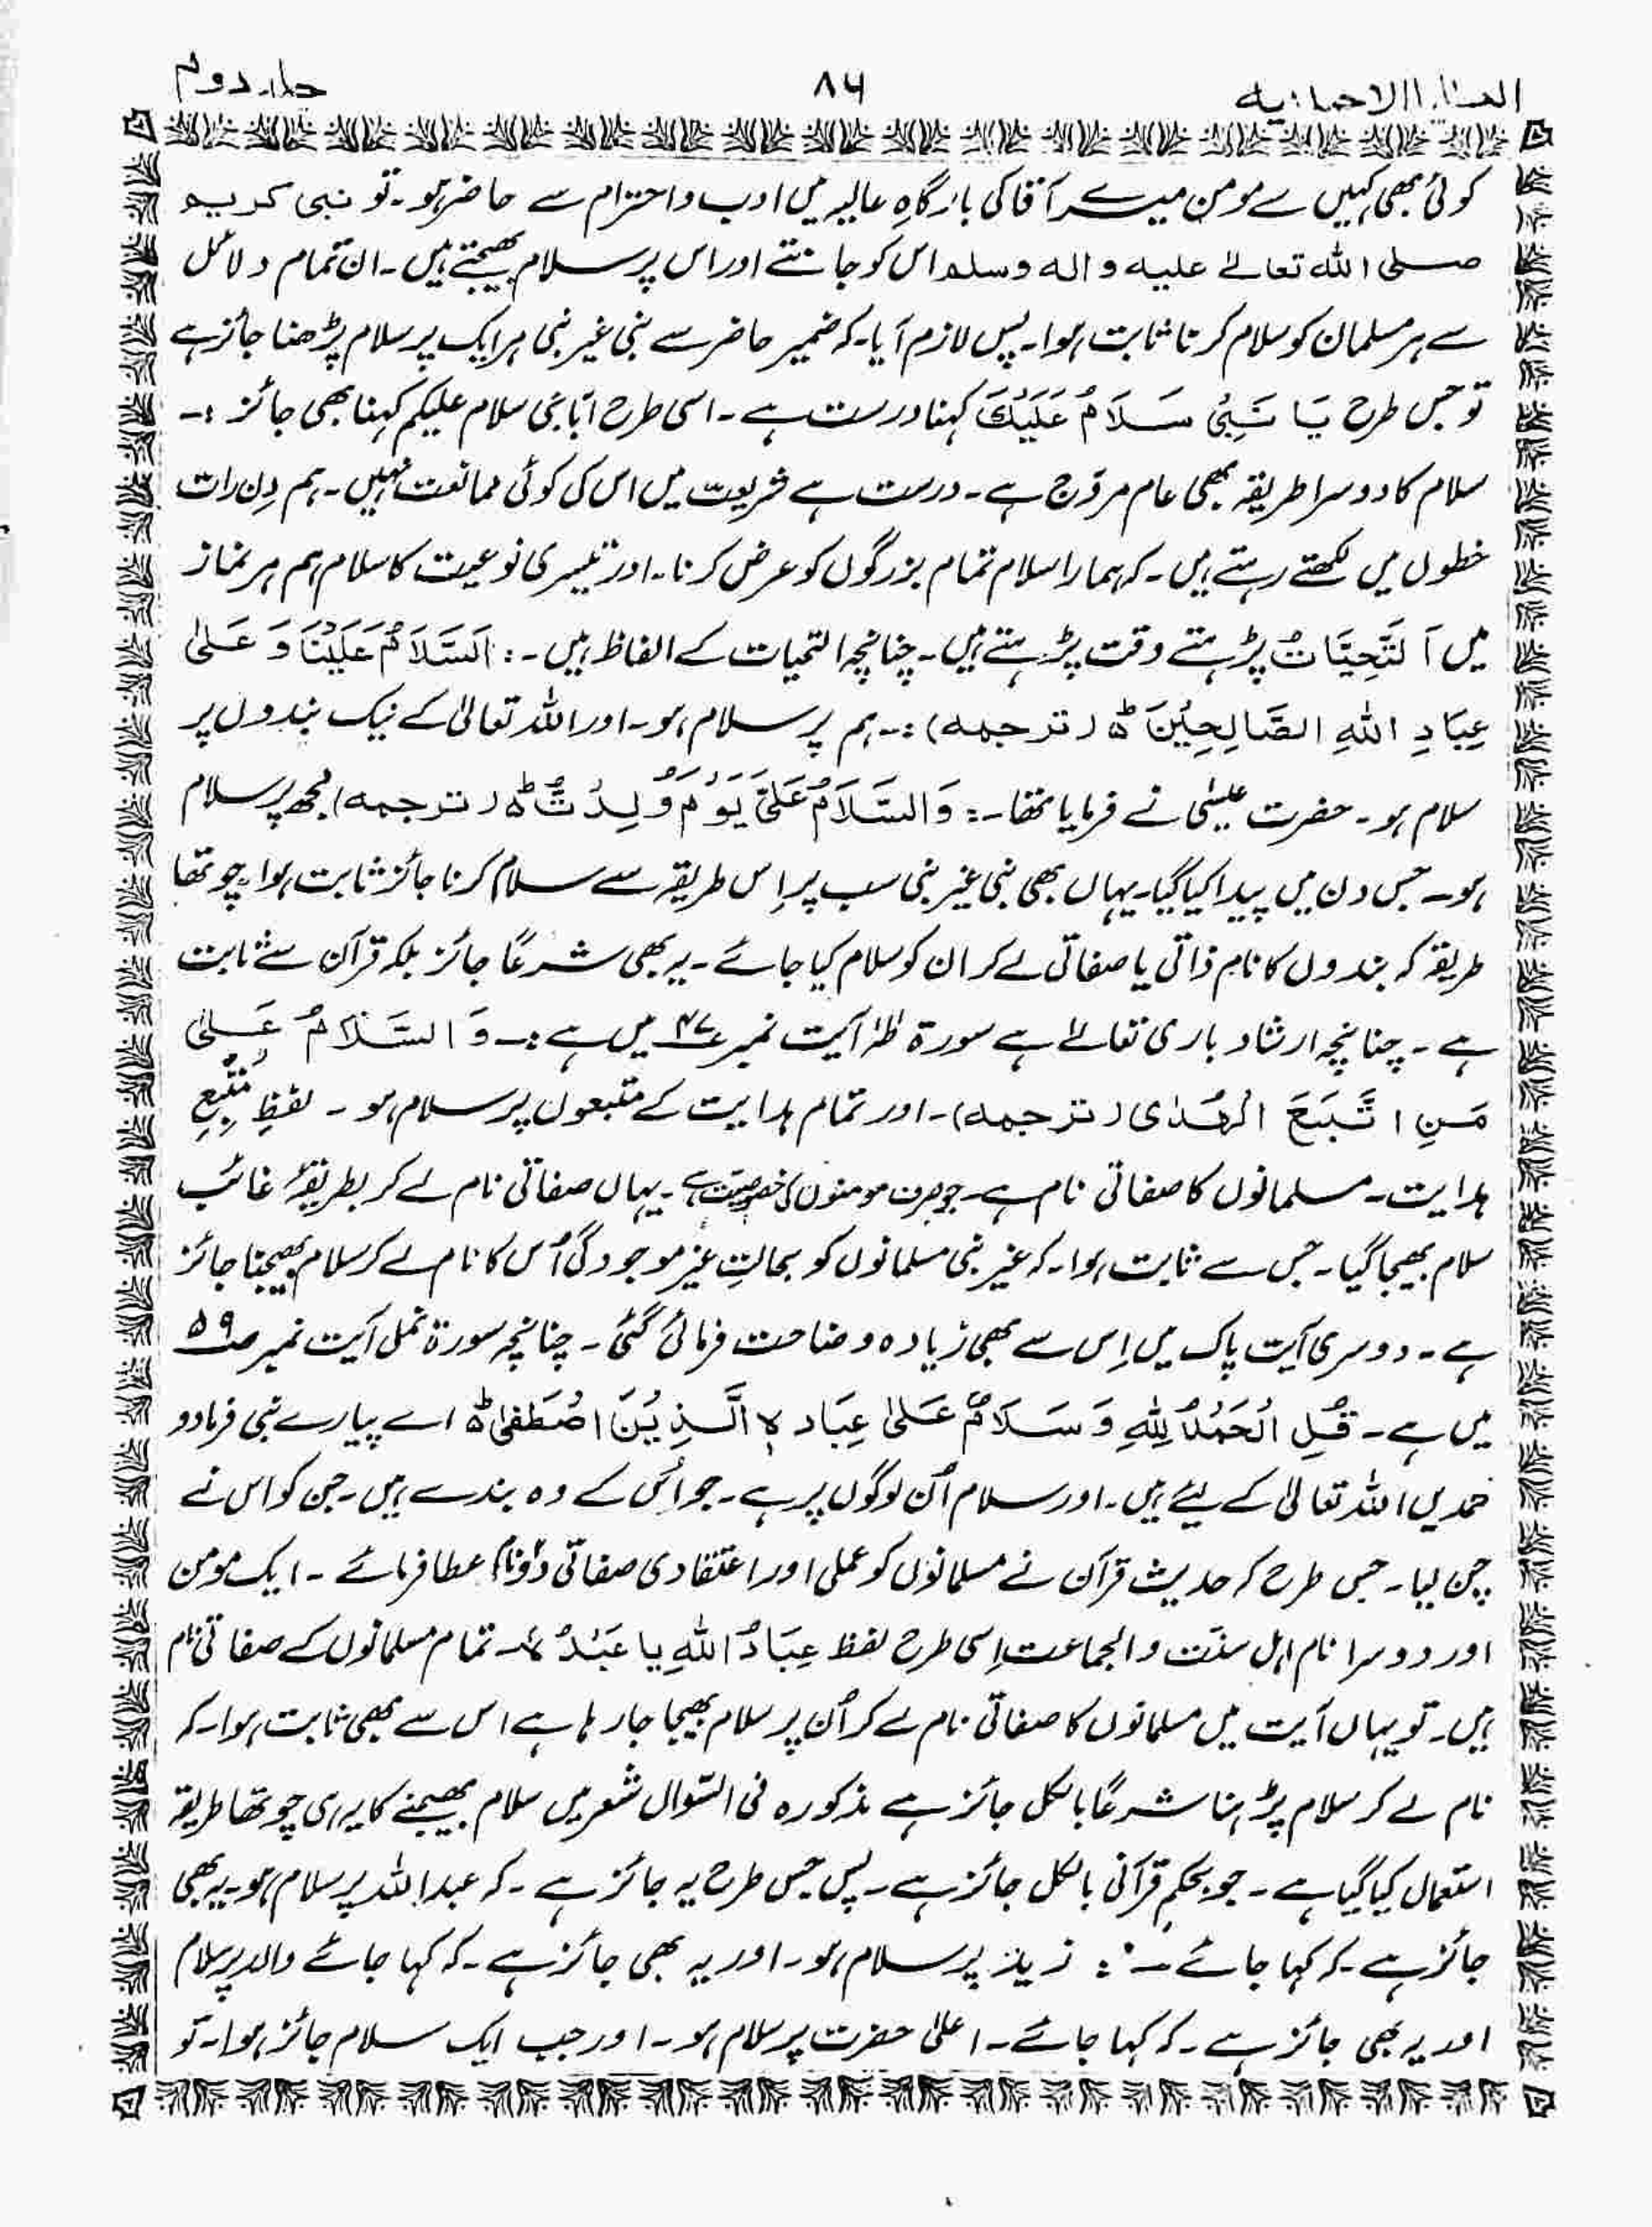 العطایا الاحمدیہ ۸۶ جلد دوم
کوئی بھی کہیں سے مومن میرے آقا کی بارگاہِ عالیہ میں ادب و احترام سے حاضر ہو۔ تو نبی کریم
صلی اللہ تعالےٰ علیہ والہ وسلم اس کو جانتے اور اس پر سلام بھیجتے ہیں۔ ان تمام دلائل
سے ہر مسلمان کو سلام کرنا ثابت ہوا۔ پس لازم آیا۔ کہ ضمیر حاضر سے نبی غیر نبی ہر ایک پر سلام پڑھنا جائز ہے
تو جس طرح یَا نَبِیُ سَلَامُ عَلَیْکَ کہنا درست ہے۔ اسی طرح ابّا جی سلام علیکم کہنا بھی جائز :۔
سلام کا دوسرا طریقہ بھی عام مروّج ہے۔ درست ہے شریعت میں اس کی کوئی ممانعت نہیں۔ ہم دِن رات
خطوں میں لکھتے رہتے ہیں۔ کہ ہمارا سلام تمام بزرگوں کو عرض کرنا۔ اور تیسری نوعیت کا سلام ہم ہر نماز
میں اَلتَّحِیَّاتُ پڑہتے وقت پڑہتے ہیں۔ چنانچہ التحیات کے الفاظ ہیں۔: اَلسَّلَامُ عَلَیْنَا وَ عَلیٰ
عِبَادِ اللہِ الصَّالِحِیْنَ ہ (ترجمہ):۔ ہم پر سلام ہو۔ اور اللہ تعالیٰ کے نیک بندوں پر
سلام ہو۔ حضرت عیسٰی نے فرمایا تھا۔: وَالسَّلَامُ عَلَیَّ یَوْمَ وُلِدْتُّ ہ (ترجمہ) مجھ پر سلام
ہو۔ جس دن میں پیدا کیا گیا۔ یہاں بھی نبی غیر نبی سب پر اِس طریقہ سے سلام کرنا جائز ثابت ہوا۔ چوتھا
طریقہ کہ بندوں کا نام ذاتی یا صفاتی لے کر ان کو سلام کیا جائے۔ یہ بھی شرعًا جائز بلکہ قرآن سے ثابت
ہے۔ چنانچہ ارشاد باری تعالےٰ ہے سورۃ طٰہٰ آیت نمبر ۴۷ میں ہے:۔ وَ السَّلَامُ عَلیٰ
مَنِ اتَّبَعَ الْہُدٰی (ترجمہ)۔ اور تمام ہدایت کے متبعوں پر سلام ہو۔ لفظِ مُتَّبِعِ
ہدایت۔ مسلمانوں کا صفاتی نام ہے۔ جو صرف مومنوں کی خصوصیت ہے۔ یہاں صفاتی نام لے کر بطریقۂ غائب
سلام بھیجا گیا۔ جس سے ثابت ہوا۔ کہ غیر نبی مسلمانوں کو بحالتِ غیر موجودگی اُس کا نام لے کر سلام بھیجنا جائز
ہے۔ دوسری آیت پاک میں اِس سے بھی زیادہ وضاحت فرمائی گئی۔ چنانچہ سورۃ نمل آیت نمبر ۵۹
میں ہے۔ قُلِ الْحَمْدُ لِلّٰہِ وَ سَلَامٌ عَلیٰ عِبَادِہِ الَّذِیْنَ اصْطَفیٰ ہ اے پیارے نبی فرما دو
حمدیں اللہ تعالیٰ کے لیئے ہیں۔ اور سلام اُن لوگوں پر ہے۔ جو اُس کے وہ بندے ہیں۔ جن کو اس نے
چن لیا۔ جس طرح کہ حدیث قرآن نے مسلمانوں کو عملی اور اعتقادی صفاتی دو نام عطا فرمائے۔ ایک مومن
اور دوسرا نام اہل سنّت والجماعت اِسی طرح لفظ عِبَادُ اللہِ یا عَبْدُہٗ تمام مسلمانوں کے صفاتی نام
ہیں۔ تو یہاں آیت میں مسلمانوں کا صفاتی نام لے کر اُن پر سلام بھیجا جا رہا ہے اس سے بھی ثابت ہوا۔ کہ
نام لے کر سلام پڑہنا شرعًا بالکل جائز ہے مذکورہ فی السّوال شعر میں سلام بھیجنے کا یہ ہی چوتھا طریقہ
استعمال کیا گیا ہے۔ جو بحکمِ قرآنی بالکل جائز ہے۔ پس جس طرح یہ جائز ہے۔ کہ عبد اللہ پر سلام ہو۔ یہ بھی
جائز ہے۔ کہ کہا جائے۔: زید پر سلام ہو۔ اور یہ بھی جائز ہے۔ کہ کہا جائے والد پر سلام
اور یہ بھی جائز ہے۔ کہ کہا جائے۔ اعلیٰ حضرت پر سلام ہو۔ اور جب ایک سلام جائز ہوا۔ تو